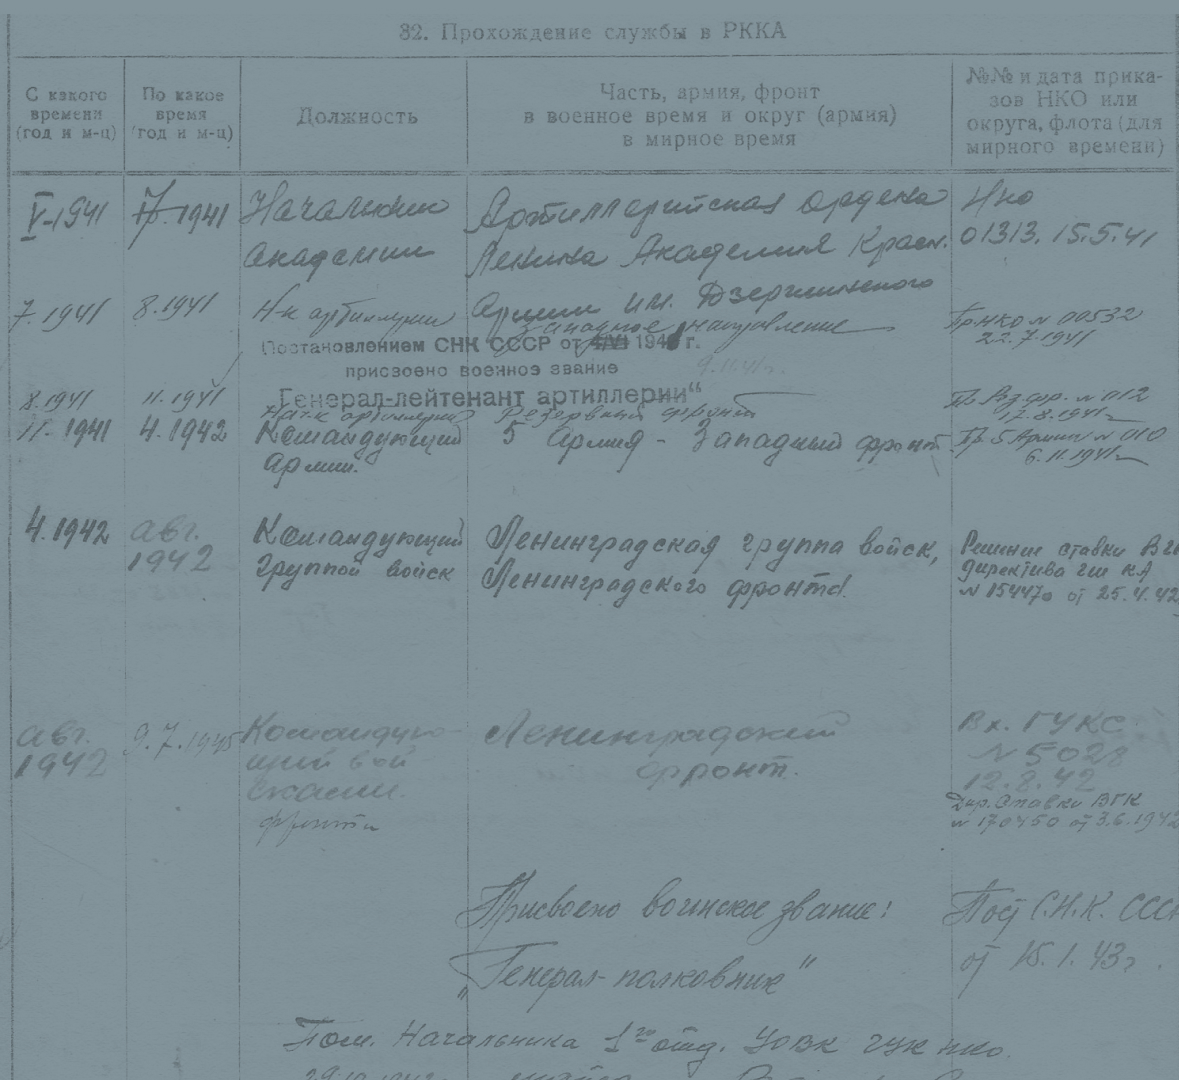 32. Прохождение службы в РККА
С какого
времени
(год и м-ц)
По какое
время
(год и м-ц)
Должность
Часть, армия, фронт
в военное время и округ (армия)
в мирное время
№№ и дата прика-
зов НКО или
округа, флота (для
мирного времени)
V-1941
1941
Начальник
Академии
Артиллерийская ордена
Ленина Академия Красн.
Армии им. Дзержинского
Нко
01313. 15.5.41
7.1941
8.1941
Н-к артиллерии
Западное направление
Пр. НКО № 00532
22.7.1941
Постановлением СНК СССР от 194 г.
присвоено военное звание
9.11.41г.
„Генерал-лейтенант артиллерии“
8.1941
11.1941
Нач-к артиллерии
Резервный фронт
№ 012
17.8.1941
11.1941
4.1942
Командующий
армии.
5 Армия - Западный фронт
Пр. 5 Армии № 010
6.11.1941
4.1942
авг.
1942
Командующий
группой войск
Ленинградская группа войск,
Ленинградского фронта.
Решение ставки ВГ
директива гш КА
№ 154470 от 25.4.42
авг.
1942
9.7.1945
Командую-
щий вой
сками.
фронта
Ленинградский
фронт.
Вх. ГУКС
№ 5028
12.8.42
Дир. Ставки ВГК
№ 170450 от 3.6.1942
Присвоено воинское звание:
„Генерал-полковник“
Пост С.Н.К. ССС
от 15.1.43г.
Пом. Начальника 1го отд. УОВК ГУК НКО.